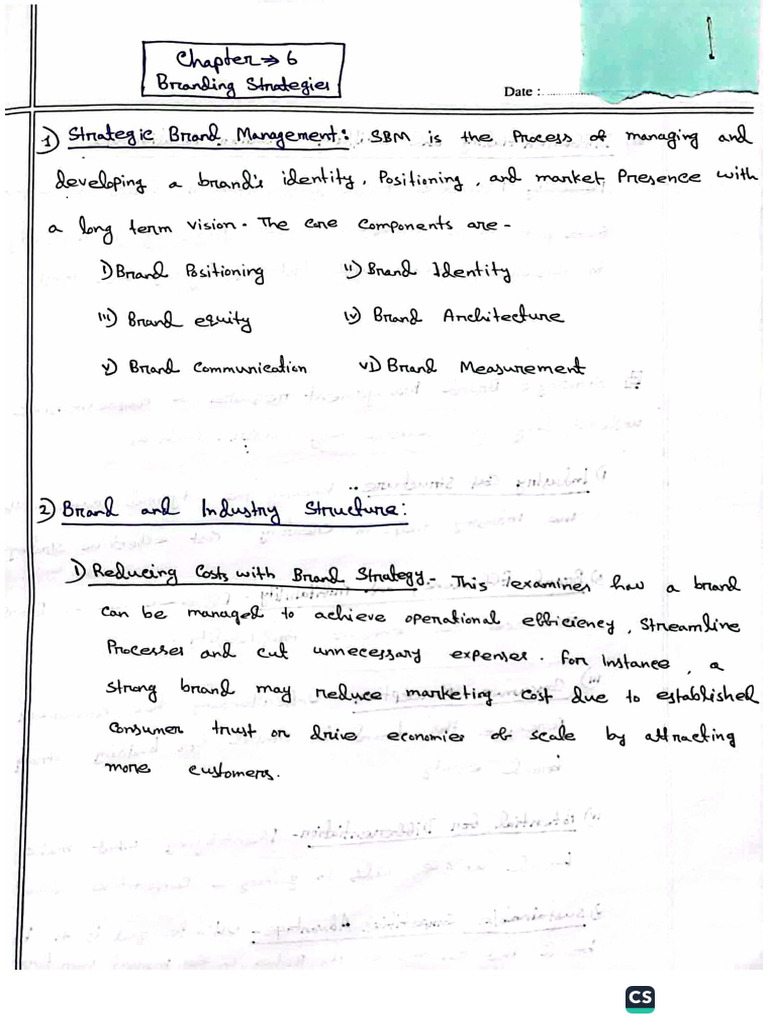 1
Chapter → 6
Branding Strategies
Date :
1) Strategic Brand Management: SBM is the Process of managing and
developing a brand's identity, Positioning, and market Presence with
a long term vision. The core components are -
i) Brand Positioning ii) Brand Identity
iii) Brand equity iv) Brand Architecture
v) Brand Communication vi) Brand Measurement
2) Brand and Industry Structure:
i) Reducing Costs with Brand Strategy - This examines how a brand
can be managed to achieve operational efficiency, Streamline
Processes and cut unnecessary expenses. For Instance, a
strong brand may reduce marketing cost due to established
consumer trust or drive economies of scale by attracting
more customers.
CS